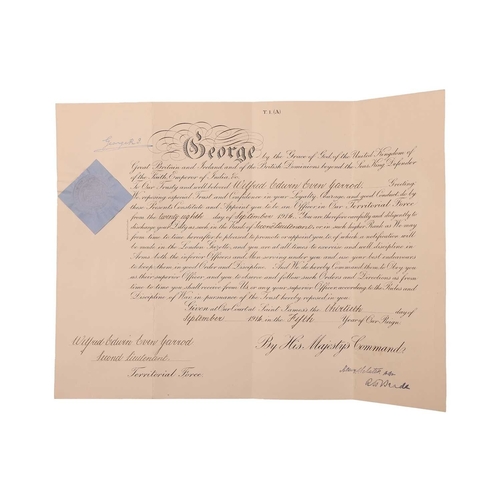 T.1.(A)
George
by the Grace of God, of the United Kingdom of
Great Britain and Ireland and of the British Dominions beyond the Seas King, Defender
of the Faith, Emperor of India, &c.
To Our Trusty and well beloved Wilfred Edwin Greeting
We reposing especial Trust and Confidence in your Loyalty, Courage, and good Conduct, do by
these Presents Constitute and Appoint you to be an Officer in Our Territorial Force
from the twenty eighth day of September 1914. You are therefore carefully and diligently to
discharge your Duty as such in the Rank of Second Lieutenant or in such higher Rank as We may
from time to time hereafter be pleased to promote or appoint you to, of which a notification will
be made in the London Gazette, and you are at all times to exercise and well discipline in
Arms both the inferior Officers and Men serving under you and use your best endeavours
to keep them in good Order and Discipline. And We do hereby Command them to Obey you
as their superior Officer, and you to observe and follow such Orders and Directions as from
time to time you shall receive from Us, or any your superior Officer, according to the Rules and
Discipline of War, in pursuance of the Trust hereby reposed in you.
Given at Our Court, at Saint James's, the thirtieth day of
September 1914 in the Fifth Year of Our Reign
By His Majesty's Command,
Wilfred Edwin
Second Lieutenant
Territorial Force.